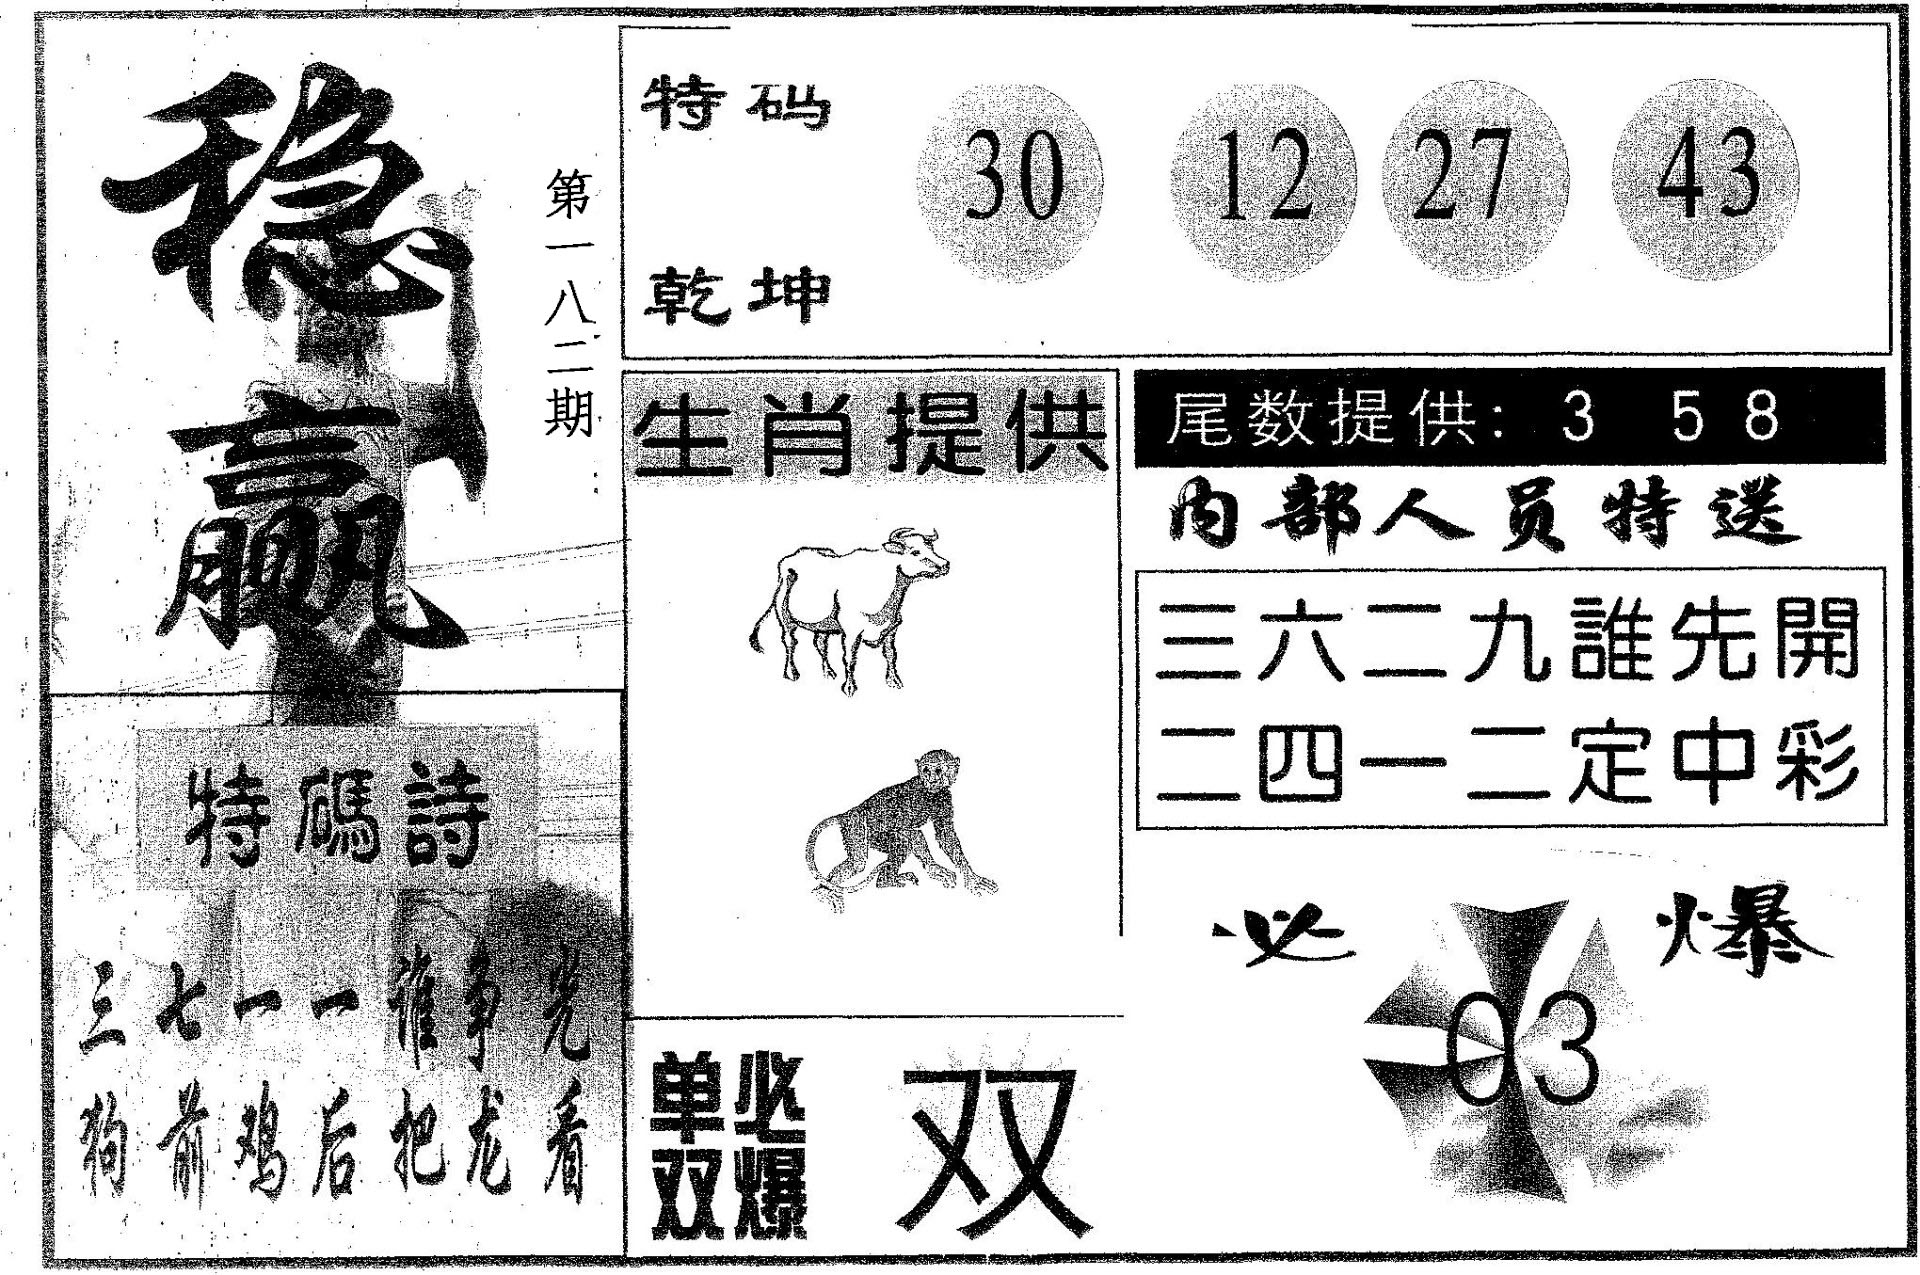 稳赢
第一八二期
特码
乾坤
30 12 27 43
生肖提供
尾数提供: 3 5 8
内部人员特送
三六二九誰先開
二四一二定中彩
特碼詩
三七一一谁争光
狗前鸡后把龙看
单双
必爆
双
必爆
03